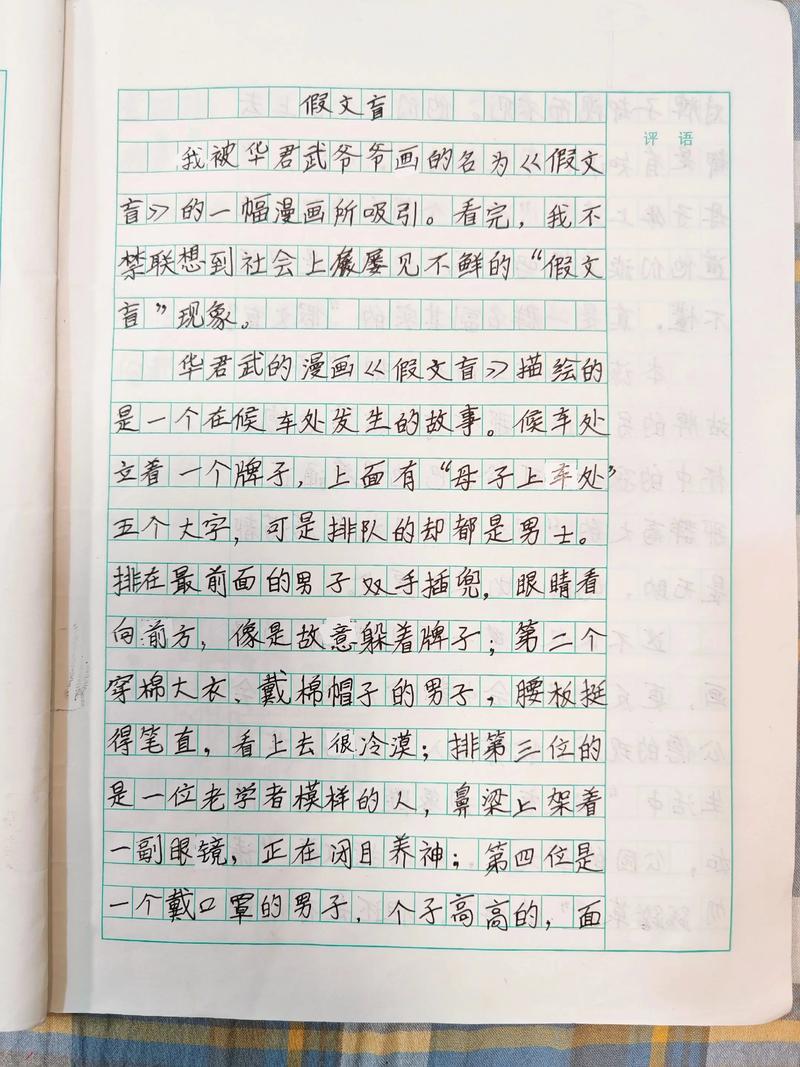 假文盲
评语
我被华君武爷爷画的名为《假文
盲》的一幅漫画所吸引。看完，我不
禁联想到社会上屡见不鲜的“假文
盲”现象。
华君武的漫画《假文盲》描绘的
是一个在候车处发生的故事。候车处
立着一个牌子，上面有“母子上车处”
五个大字，可是排队的却都是男士。
排在最前面的男子双手插兜，眼睛看
向前方，像是故意躲着牌子；第二个
穿棉大衣、戴棉帽子的男子，腰板挺
得笔直，看上去很冷漠；排第三位的
是一位老学者模样的人，鼻梁上架着
一副眼镜，正在闭目养神；第四位是
一个戴口罩的男子，个子高高的，面